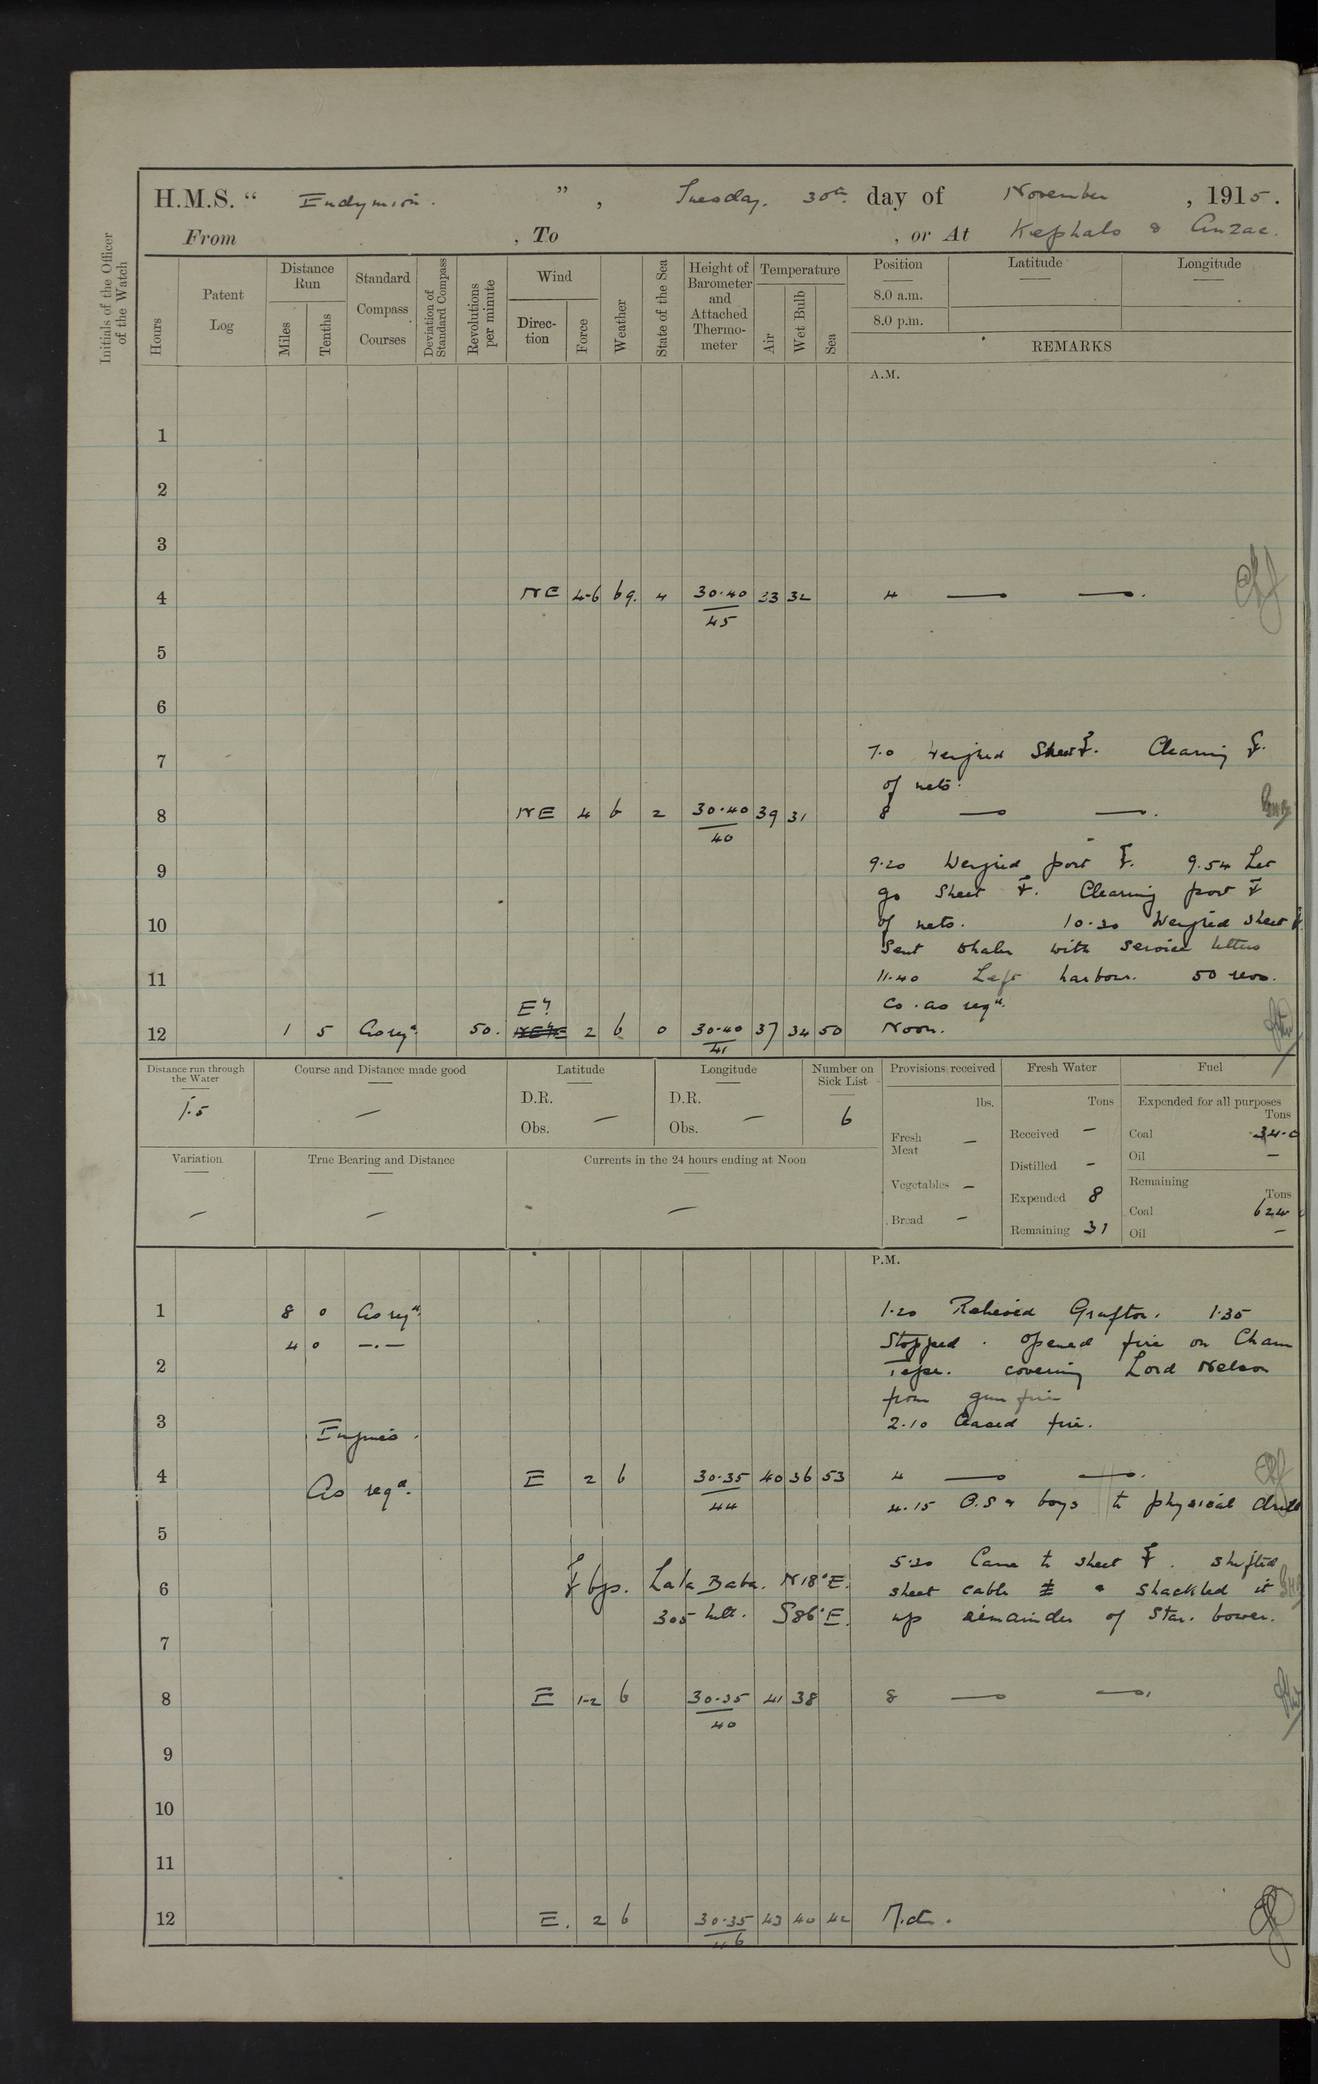 H.M.S. “ Endymion. ”, Tuesday, 30th day of November, 1915.
From , To , or At Kephalo & Anzac.
Initials of the Officer of the Watch
Hours
Patent Log
Distance Run
Miles
Tenths
Standard Compass Courses
Deviation of Standard Compass
Revolutions per minute
Wind
Direction
Force
Weather
State of the Sea
Height of Barometer and Attached Thermometer
Temperature
Air
Wet Bulb
Sea
Position
8.0 a.m.
8.0 p.m.
Latitude
Longitude
REMARKS
A.M.
1
2
3
4 NE 4-6 bq. 4 30.40/45 33 32 4 — —.
5
6
7.0 Weighed Sheet ⚓. Clearing ⚓.
7
of nets.
8 NE 4 b 2 30.40/40 39 31 8 — —.
9 9.20 Weighed port ⚓. 9.54 Let
go Sheet ⚓. Clearing port ⚓
10 of nets. 10.30 Weighed sheet ⚓.
Sent whaler with service letters
11 11.40 Left harbour. 50 revs.
Co. as reqd.
12 1 5 As reqd. 50. Ely 2 b 0 30.40/41 37 34 50 Noon.
Distance run through the Water
1.5
Course and Distance made good
—
Latitude
D.R.
Obs. —
Longitude
D.R.
Obs. —
Number on Sick List
6
Provisions received
lbs.
Fresh Meat —
Vegetables —
Bread —
Fresh Water
Tons
Received —
Distilled —
Expended 8
Remaining 31
Fuel
Expended for all purposes
Tons
Coal 34.0
Oil —
Remaining
Tons
Coal 624
Oil —
Variation
—
True Bearing and Distance
—
Currents in the 24 hours ending at Noon
—
P.M.
1 8 0 As reqd. 1.20 Relieved Grafton. 1.35
4 0 —.— Stopped. Opened fire on Cham
2 Tepe. covering Lord Nelson
from gun fire
3 2.10 Ceased fire.
Engines.
4 As reqd. E 2 b 30.35/44 40 36 53 4 — —.
4.15 O.S & boys to physical drill
5
5.20 Came to sheet ⚓. shifted
6 ⚓ bgs. Lala Baba. N18°E. sheet cable & shackled it
305 hill. S86°E. up remainder of Star. bower.
7
8 E 1-2 b 30.35/40 41 38 8 — —.
9
10
11
12 E. 2 b 30.35/46 43 40 42 Mdt.